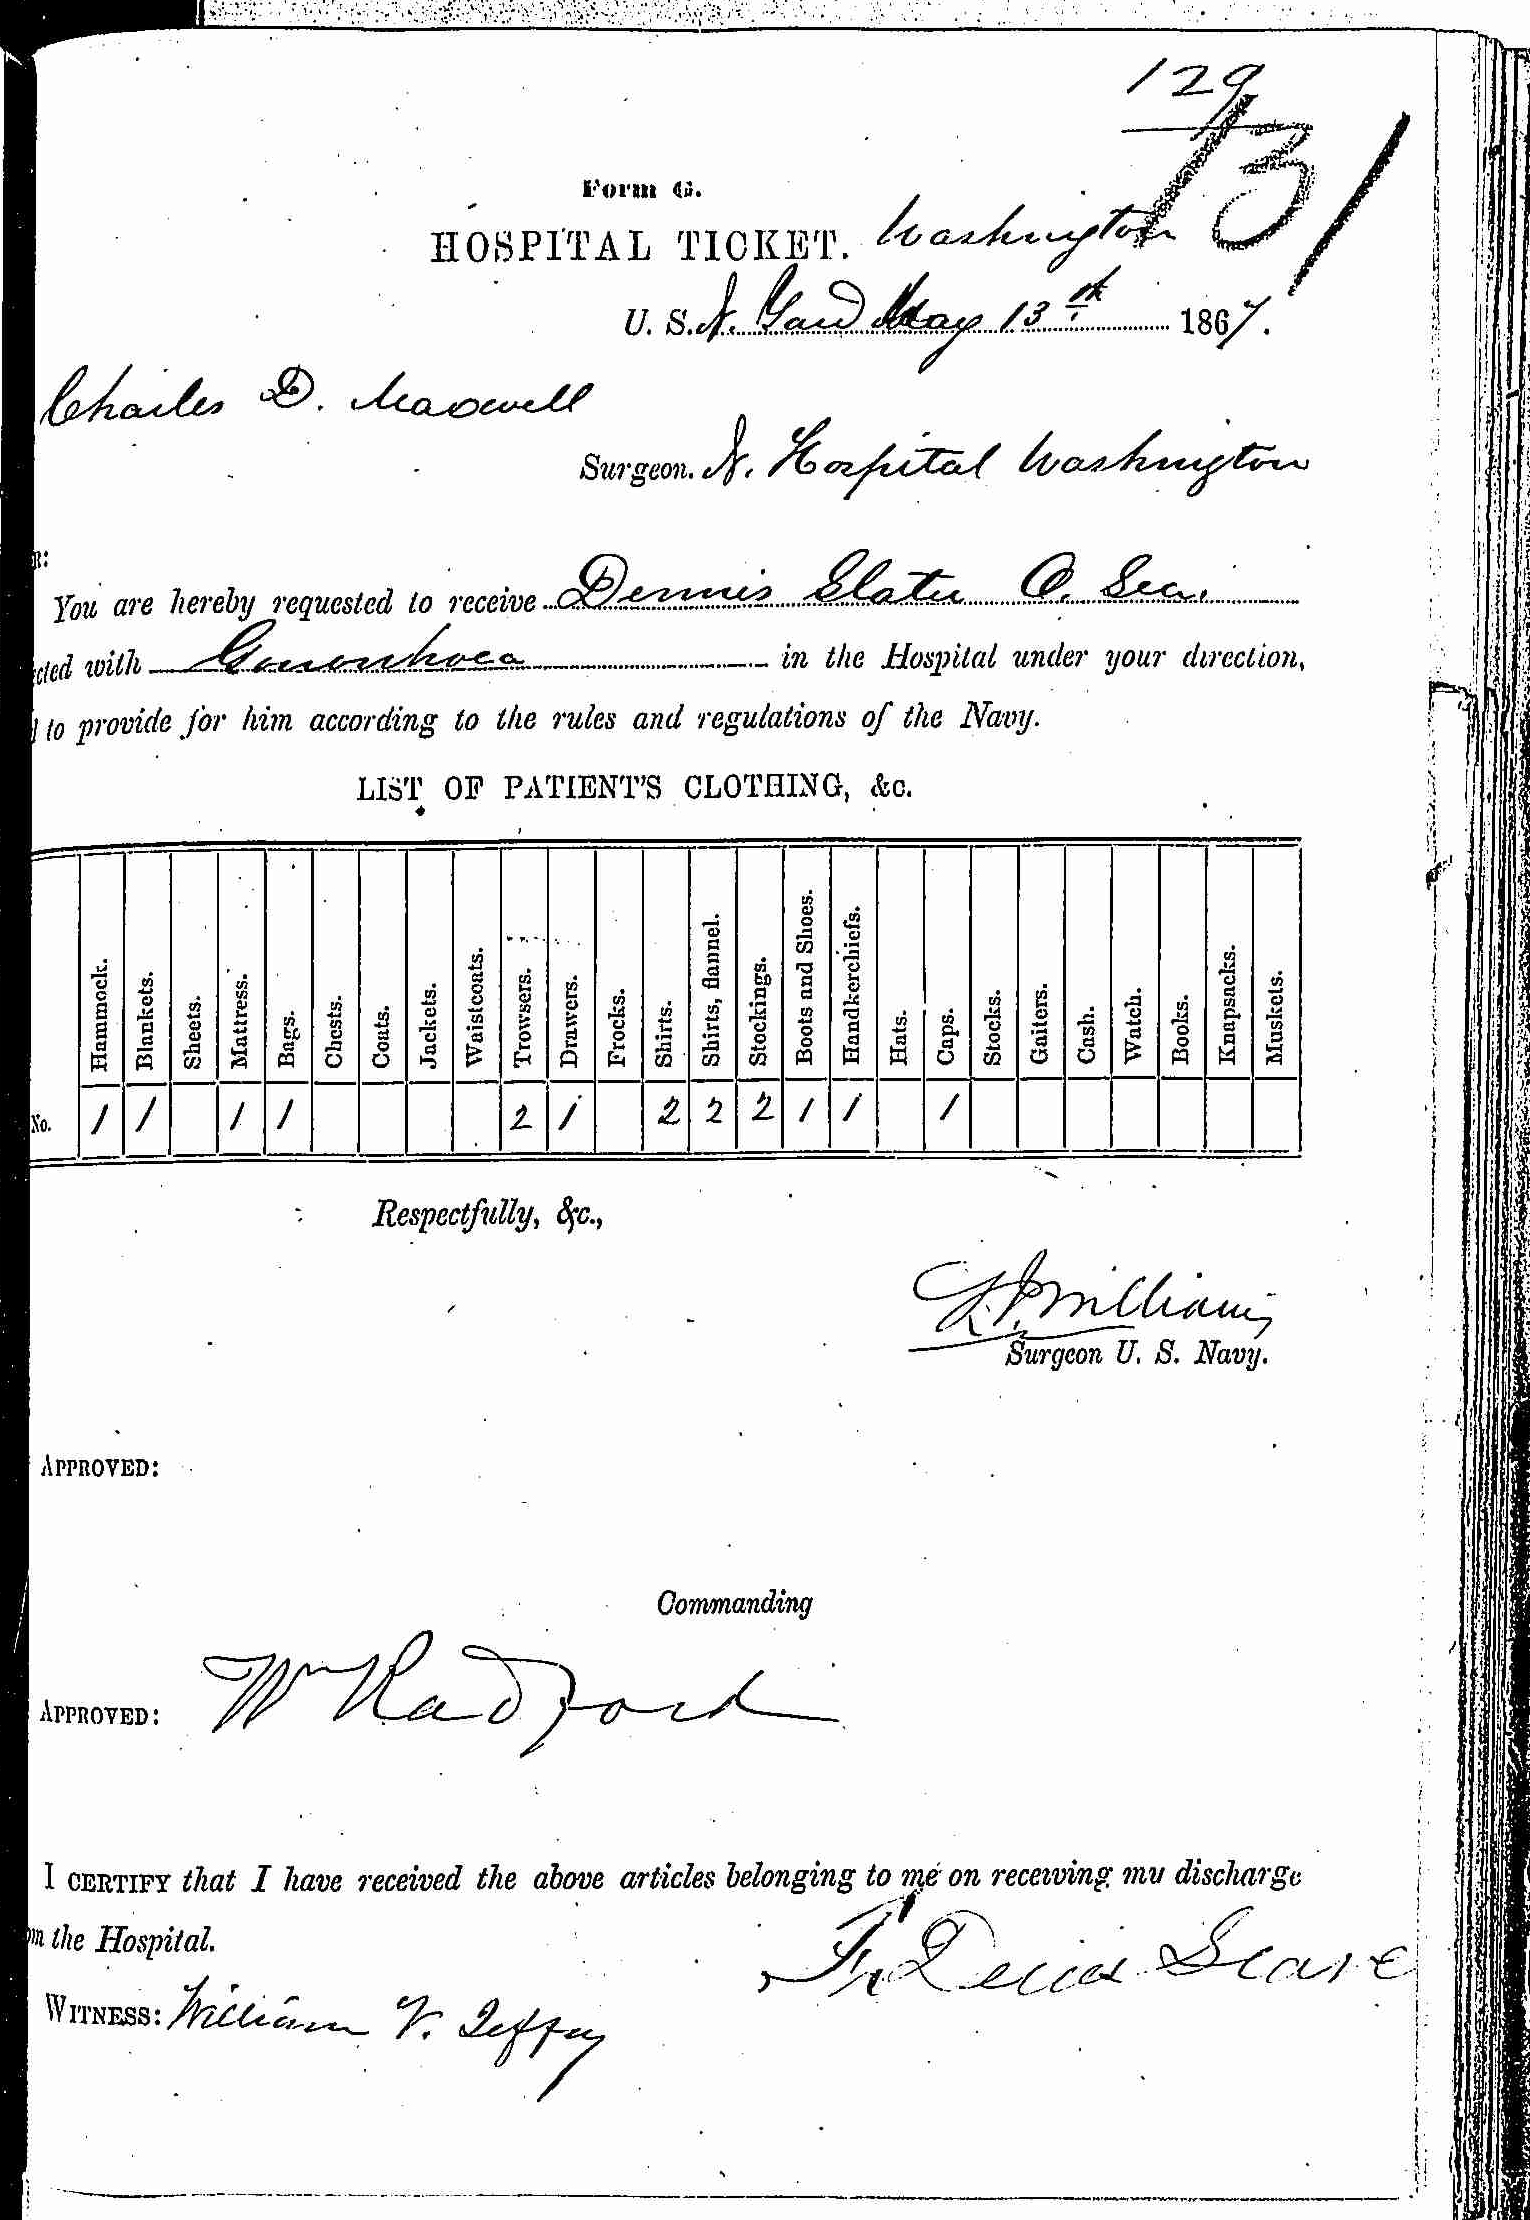 129
131
Form G.
HOSPITAL TICKET. Washington
U. S. N. Yard May 13th 1867.
Charles D. Maxwell
Surgeon. N. Hospital Washington
R:
You are hereby requested to receive Dennis Slater O. Sea.
cted with Gonorrhoea in the Hospital under your direction,
d to provide for him according to the rules and regulations of the Navy.
LIST OF PATIENT'S CLOTHING, &c.
Hammock. Blankets. Sheets. Mattress. Bags. Chests. Coats. Jackets. Waistcoats. Trowsers. Drawers. Frocks. Shirts. Shirts, flannel. Stockings. Boots and Shoes. Handkerchiefs. Hats. Caps. Stocks. Gaiters. Cash. Watch. Books. Knapsacks. Muskets.
No. 1 1 1 1 2 1 2 2 2 1 1 1
Respectfully, &c.,
Williams
Surgeon U. S. Navy.
APPROVED:
Commanding
APPROVED: Wm Radford
I CERTIFY that I have received the above articles belonging to me on receiving my discharge
om the Hospital.
WITNESS: William V.